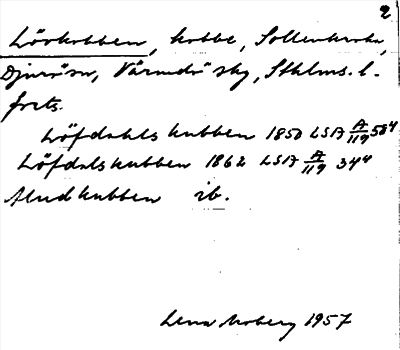 2
Lövkobben, kobbe, Sollenkroka,
Djurö sn, Värmdö skg, Sthlms. l.
forts.
Löfdahls kubben 1850 LSA A/119 58⁴
Löfdalskubben 1862 LSA A/119 34⁴
Alnd kubben ib.
Lena Moberg 1957